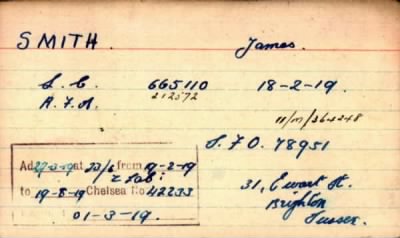 SMITH. James.
665110 18-2-19.
R.F.A. 212572
11/M/264248
S.F.O. 78951
Ad 27-3-19 at 23/6 from 19-2-19
to 19-8-19 Chelsea No 42233
01-3-19.
31, Ewart St.
Brighton
Sussex.